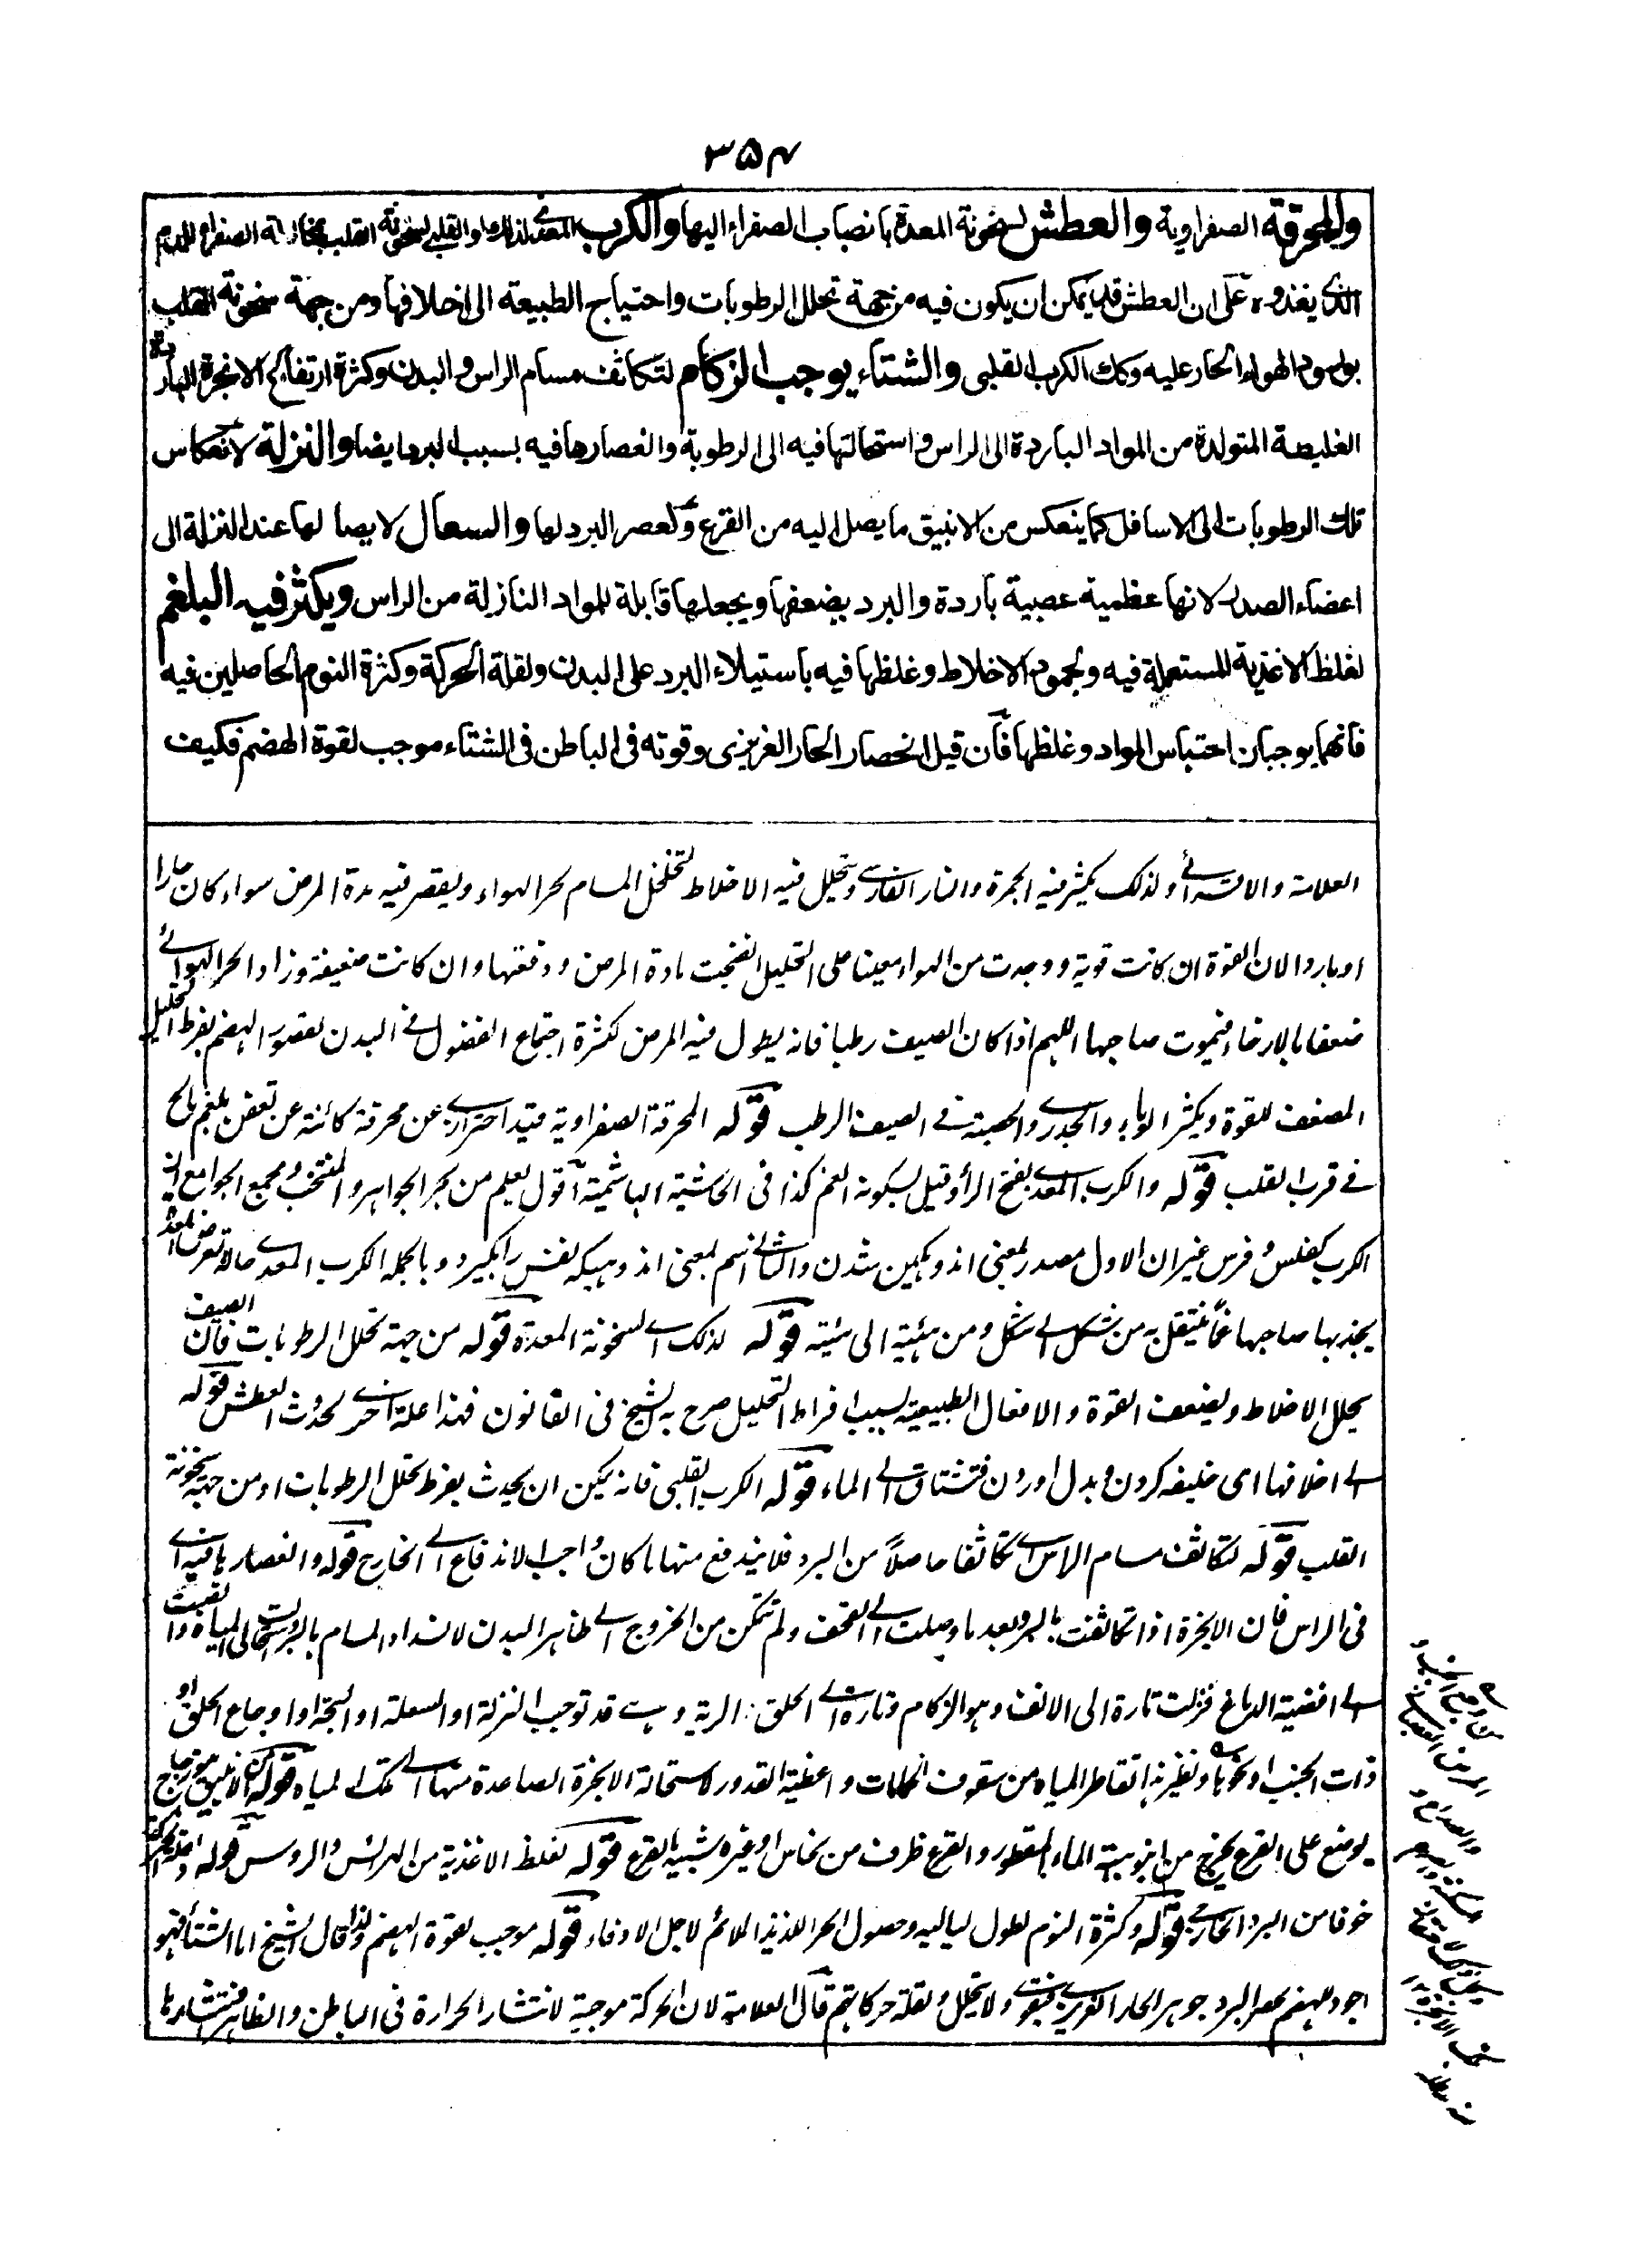 ۳۵۴
والمحرقة الصفراوية والعطش لسخونة المعدة بانصباب الصفراء اليها والكرب المعدى لذلك او القلبى لسخونة القلب الصفراء للدم
الذى يغذوه على ان العطش قد يمكن ان يكون فيه من جهة تحلل الرطوبات واحتياج الطبيعة الى اخلافها ومن جهة سخونة القلب
بورود الهواء الحار عليه وكك الكرب القلبى والشتاء يوجب الزكام لتكاثف مسام الراس والبدن وكثرة ارتفاع الابخرة الباردة
الغليظة المتولدة من المواد الباردة الى الراس واستحالتها فيه الى الرطوبة وانعصارها فيه بسبب البرد ايضا والنزلة لانعكاس
تلك الرطوبات الى الاسافل كما ينعكس من الانبيق ما يصل اليه من القرع ولعصر البرد لها والسعال لايصالها عند النزلة الى
اعضاء الصدر لانها عظمية عصبية باردة والبرد يضعفها ويجعلها قابلة للمواد النازلة من الراس ويكثر فيه البلغم
لغلظ الاغذية المستعملة فيه ولجمود الاخلاط وغلظها فيه باستيلاء البرد على البدن ولقلة الحركة وكثرة النوم الحاصلين فيه
فانهما يوجبان احتباس المواد وغلظها فان قيل انحصار الحار الغريزى وقوته فى الباطن فى الشتاء موجب لقوة الهضم فكيف
العلامة والاقسرائى ولذلك يكثر فيه الحمرة والنار الفارسى ويتحلل فيه الاخلاط لتخلخل المسام لحر الهواء ويقصر فيه مدة المرض سواء كان حارا
او باردا لان القوة ان كانت قوية ووجدت من الهواء معينا على التحليل انضجت مادة المرض ودفعتها وان كانت ضعيفة وزاد الحر الهوائى
ضعفا بالارخاء فيموت صاحبها اللهم اذا كان الصيف رطبا فانه يطول فيه المرض لكثرة اجتماع الفضول فى البدن لقصور الهضم بفرط التحليل
المضعف للقوة ويكثر الوباء والجدرى والحصبة فى الصيف الرطب قوله المحرقة الصفراوية قيد احترازى عن محرقة كائنة عن تعفن بلغم مالح
فى قرب القلب قوله والكرب المعدى بفتح الراء وقيل بسكونه الغم كذا فى الحاشية الهاشمية اقول يعلم من بحر الجواهر والمنتخب ومجمع الجوامع ان
الكرب كفلس وفرس غير ان الاول مصدر بمعنى اندوهگين شدن والثانى اسم بمعنى اندوهيكه نفس را بگيرد وبالجملة الكرب المعدى حالة تعرض للمعدة
يجد بها صاحبها غما ينتقل به من شكل الى شكل ومن هيئة الى هيئة قوله لذلك اى لسخونة المعدة قوله من جهة تحلل الرطوبات فان الصيف
يحلل الاخلاط ويضعف القوة والافعال الطبيعية بسبب افراط التحليل صرح به الشيخ فى القانون فهذا علة اخرى لحدوث العطش قوله
الى اخلافها اى خليفه كردن وبدل اوردن فتشتاق الى الماء قوله الكرب القلبى فانه يمكن ان يحدث بفرط تحلل الرطوبات او من جهة سخونة
القلب قوله لتكاثف مسام الراس اى تكاثفا حاصلا من البرد فلا يندفع منها ما كان واجب الاندفاع الى الخارج قوله وانعصارها فيه اى
فى الراس فان الابخرة اذا تكاثفت بالبرد بعد ما وصلت الى القحف ولم تتمكن من الخروج الى ظاهر البدن لانسداد المسام بالبرد استحالت الى المياه وانصبت
الى افضية الدماغ فنزلت تارة الى الانف وهو الزكام وتارة الى الحلق والرية وهى قد توجب النزلة او السعلة او البحة او اوجاع الحلق او
ذات الجنب او نحوها ونظيره تقاطر المياه من سقوف الحمامات واغطية القدور لاستحالة الابخرة الصاعدة منها الى تلك المياه قوله من الانبيق هو زجاج
يوضع على القرع يخرج من انبوبته الماء المقطور والقرع ظرف من نحاس او غيره شبيه بالقرع قوله لغلظ الاغذية من الهرائس والروس قوله ولقلة الحركة
خوفا من البرد الخارجى قوله وكثرة النوم لطول لياليه وحصول الحر اللذيذ الملائم لاجل الادفاء قوله موجب لقوة الهضم ولذا قال الشيخ اما الشتاء فهو
اجود للهضم لحصر البرد جوهر الحار الغريزى فيقوى ولا يتحلل ولقلة حركاتهم قال العلامة لان الحركة موجبة لانتشار الحرارة فى الباطن والظاهر فتشاركها